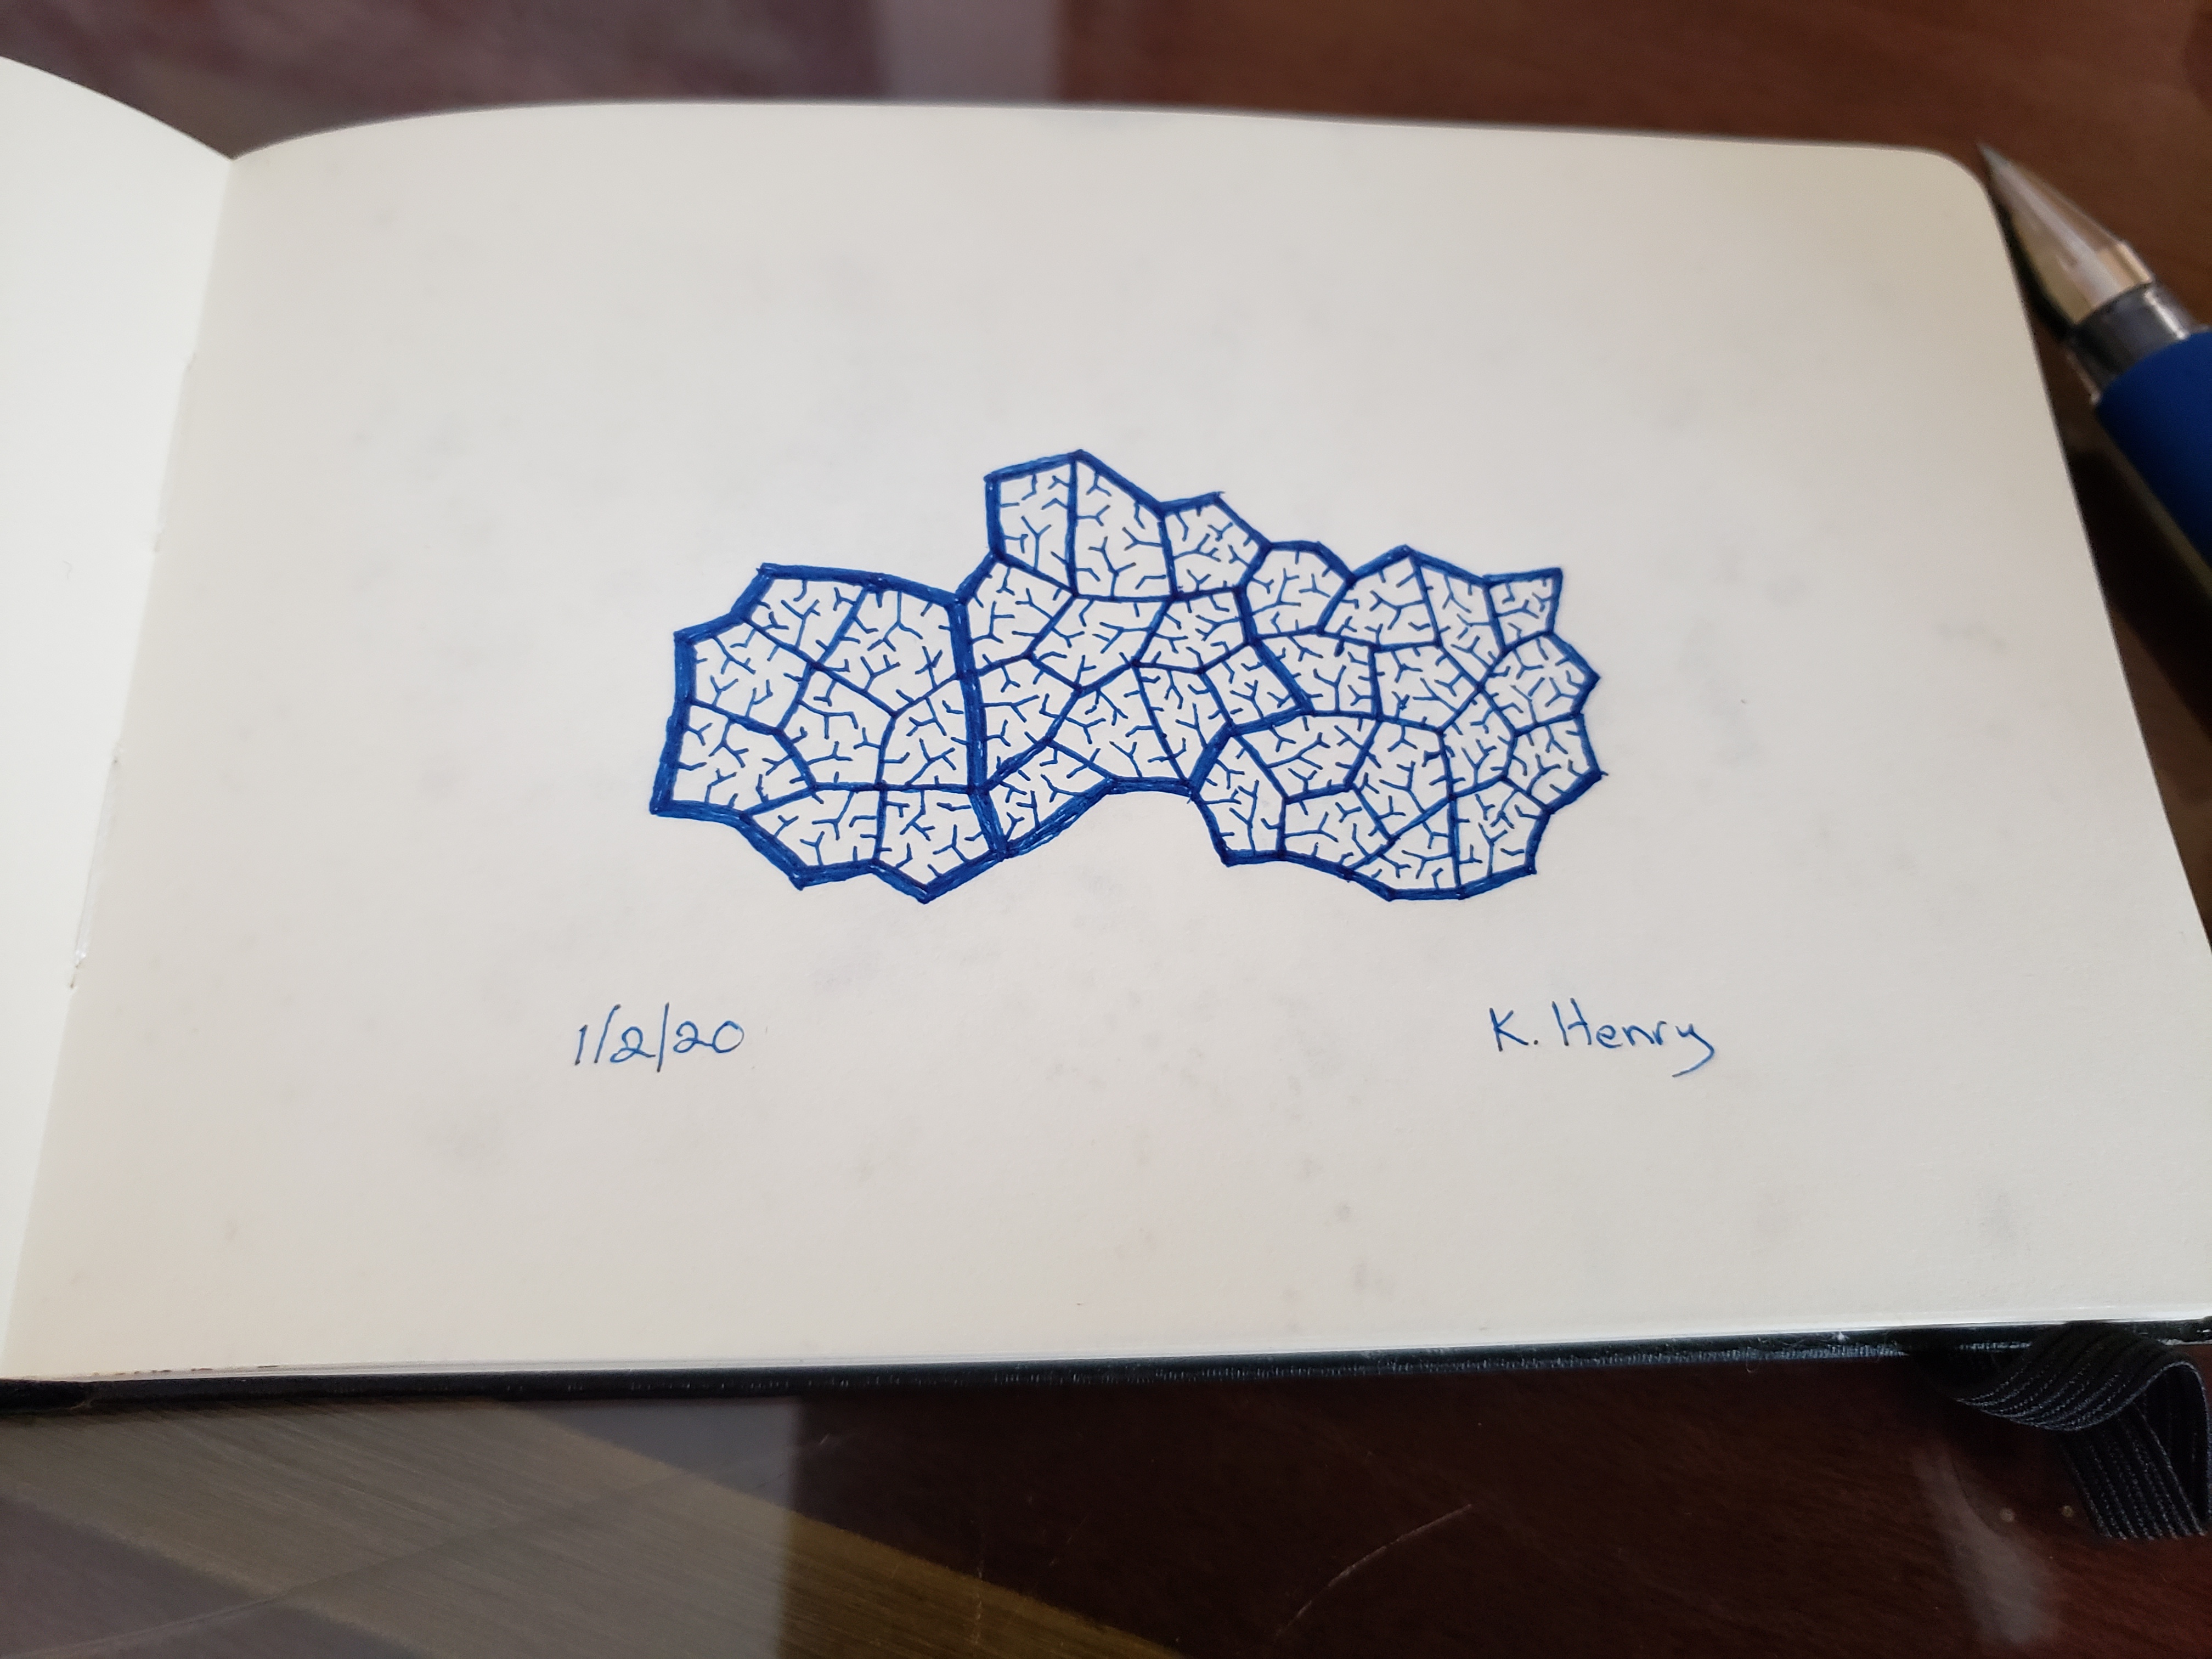 1/2/20
K. Henry